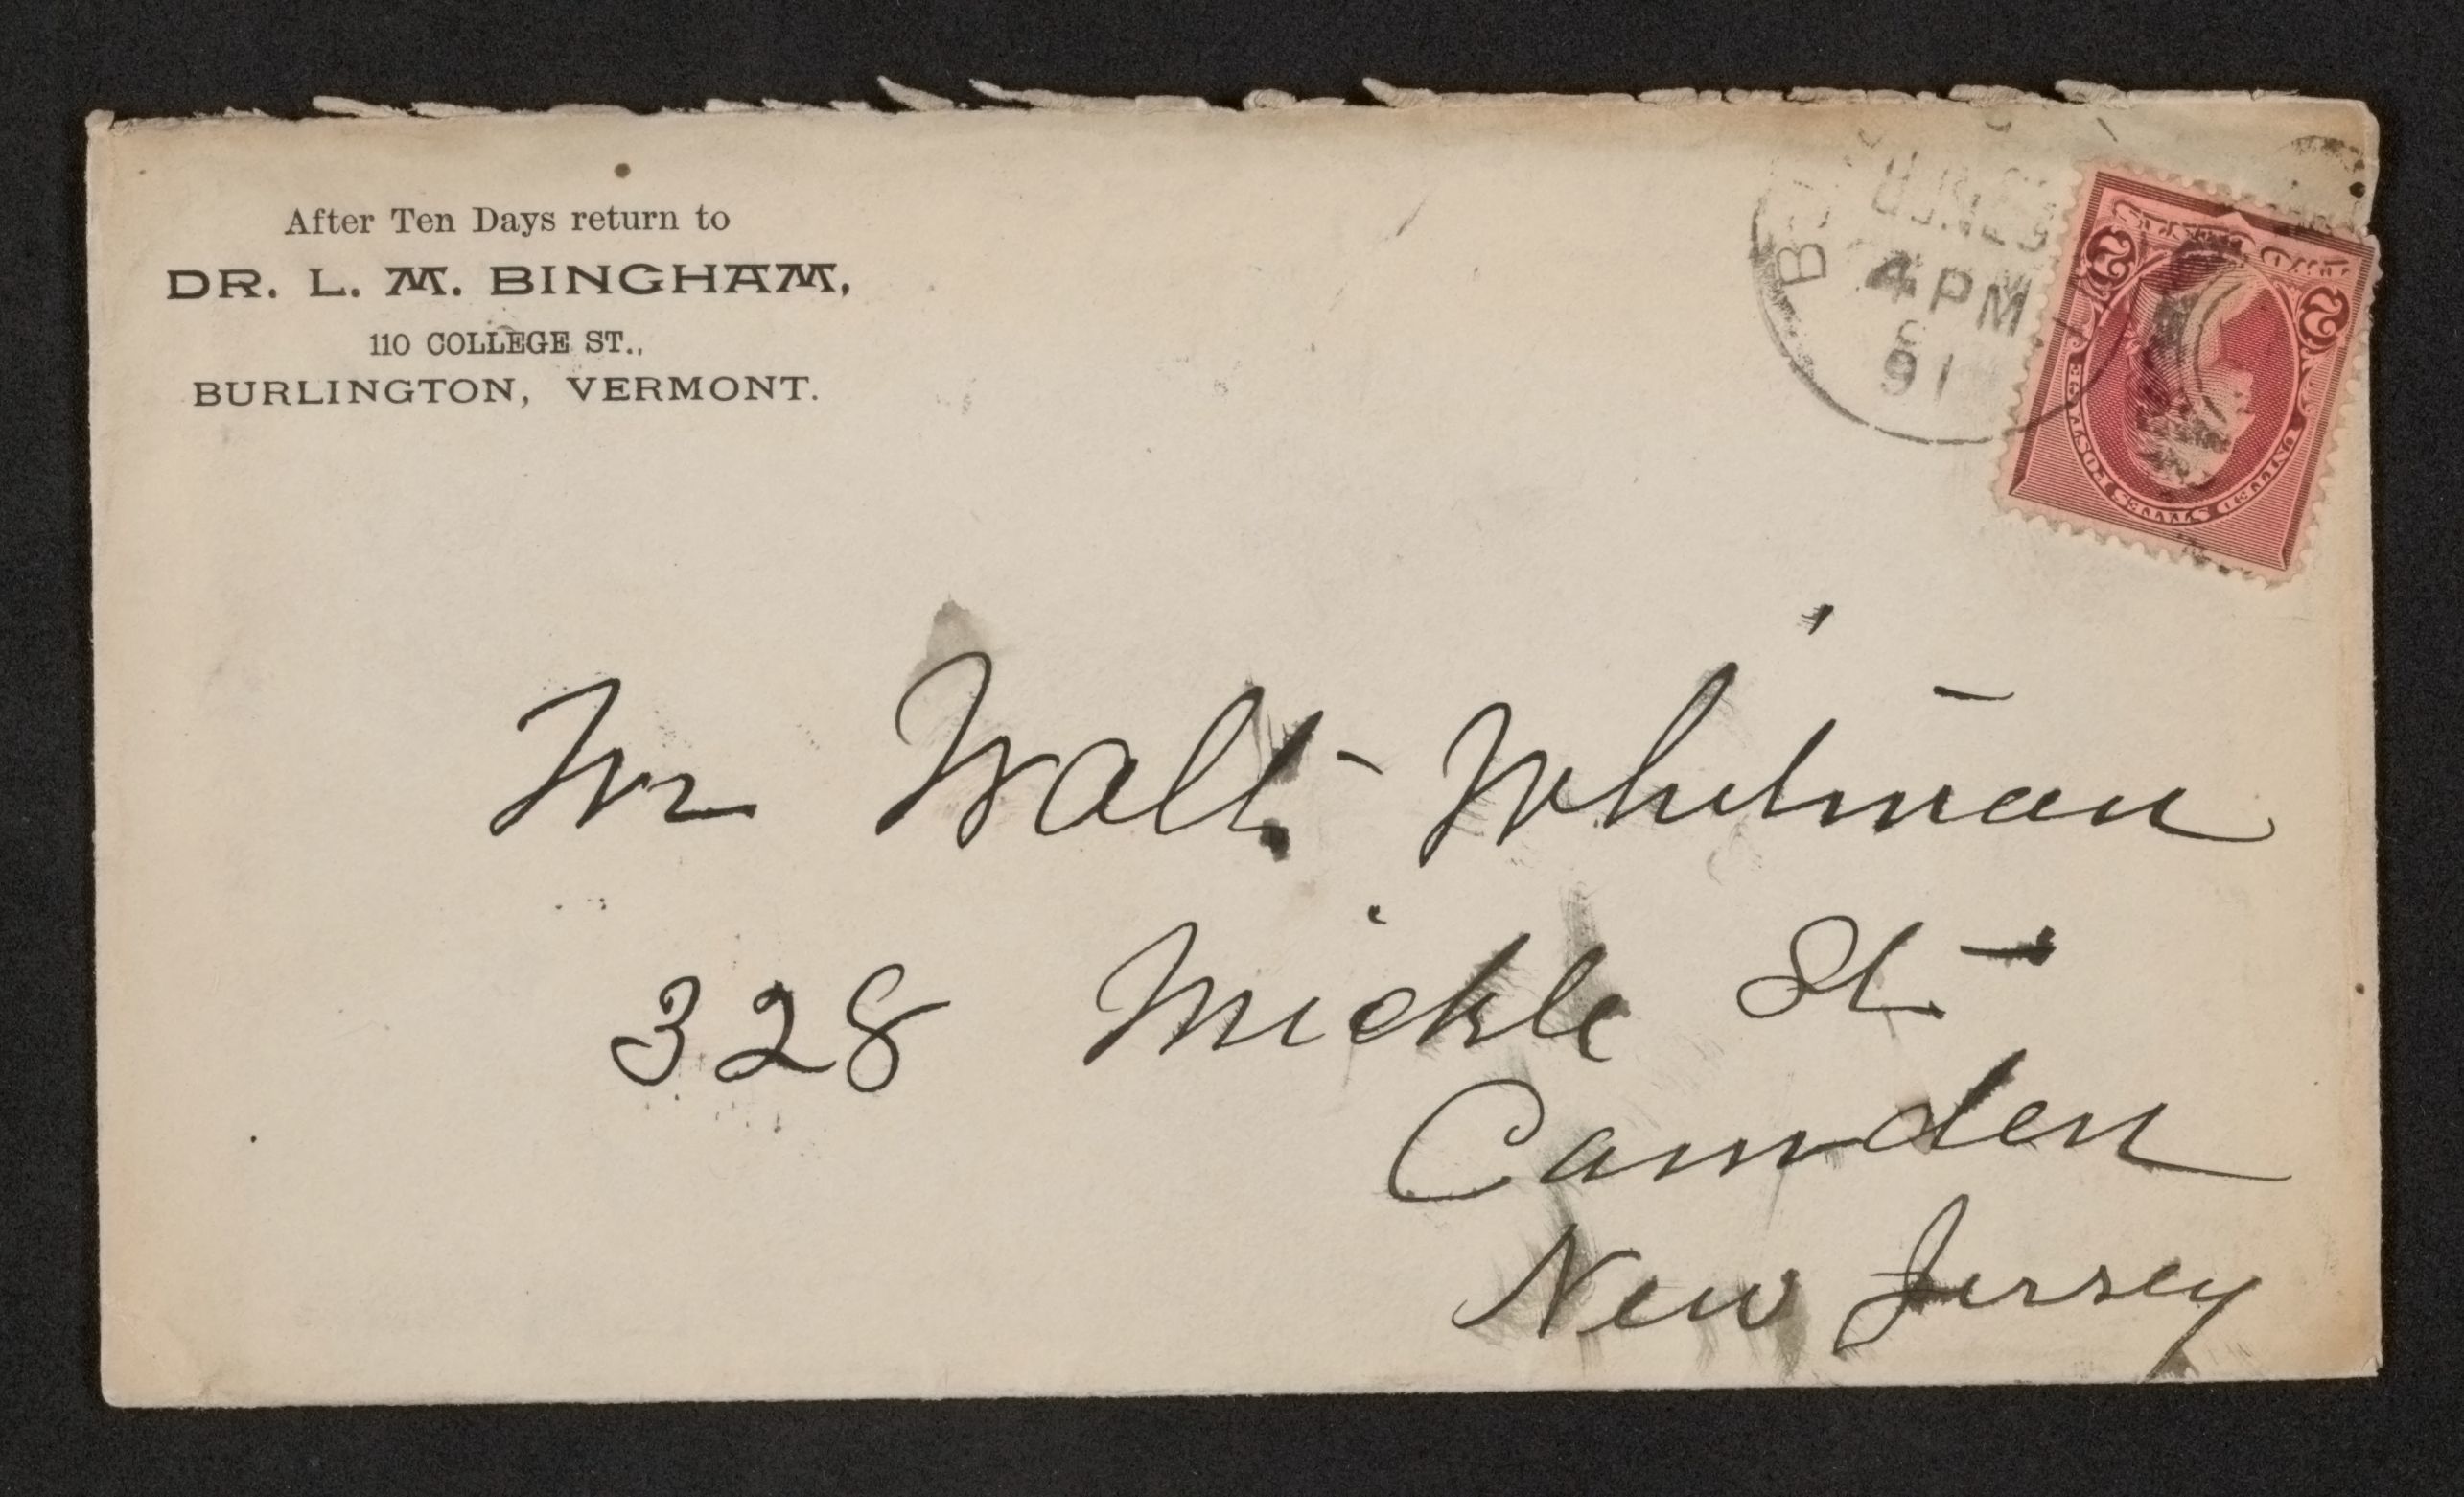 After Ten Days return to
DR. L. M. BINGHAM,
110 COLLEGE ST.,
BURLINGTON, VERMONT.
4 PM
91
2 2
Mr Walt Whitman
328 Mickle St
Camden
New Jersey